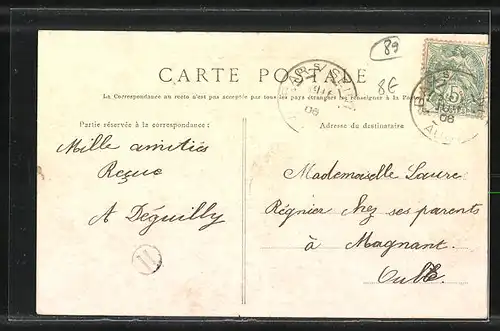 89
8E
CARTE POSTALE
La Correspondance au recto n'est pas acceptée par tous les pays étrangers (se renseigner à la Poste)
Partie réservée à la correspondance :
Adresse du destinataire
Mille amitiés
Reçue
A Déguilly
Mademoiselle Laure
Régnier chez ses parents
à Magnant
Aube
08
5
08
AUBE